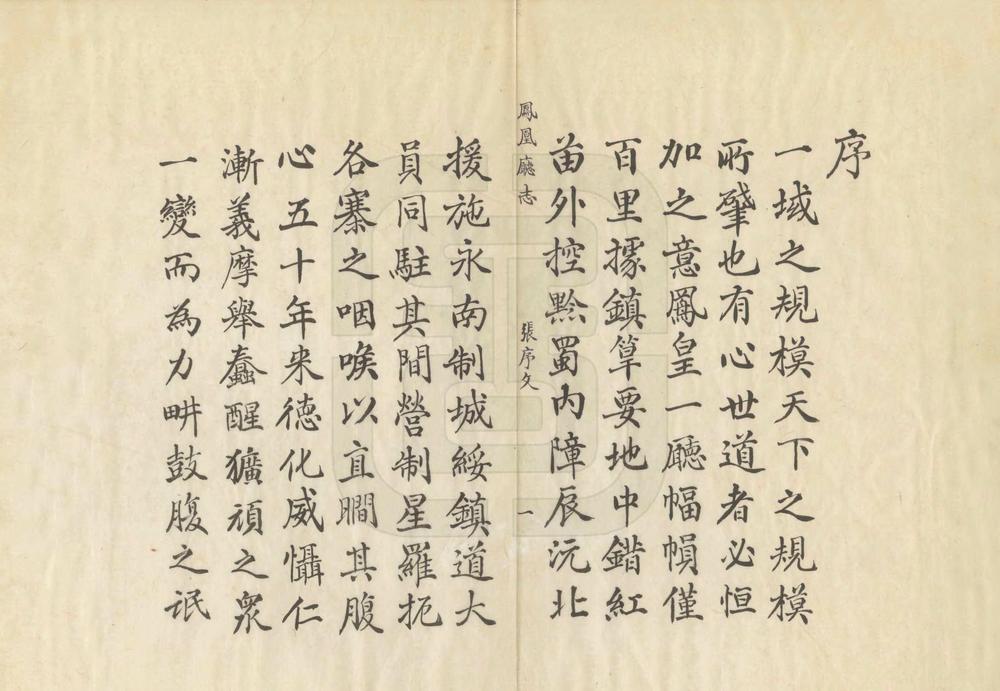 序
一域之規模天下之規模
所肇也有心世道者必恒
加之意鳳皇一廳幅幀僅
百里據鎮筸要地中錯紅
苗外控黔蜀內障辰沅北
鳳凰廳志 張序文 一
援施永南制城綏鎮道大
員同駐其間營制星羅扼
各寨之咽喉以直瞯其腹
心五十年来德化威懾仁
漸義摩舉蠢醒獷頑之眾
一變而為力畊鼓腹之氓